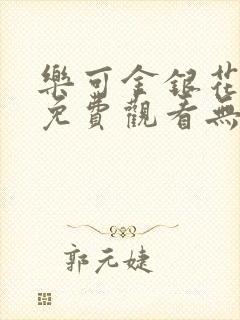 樂可金銀花
免費觀看無
郭元婕